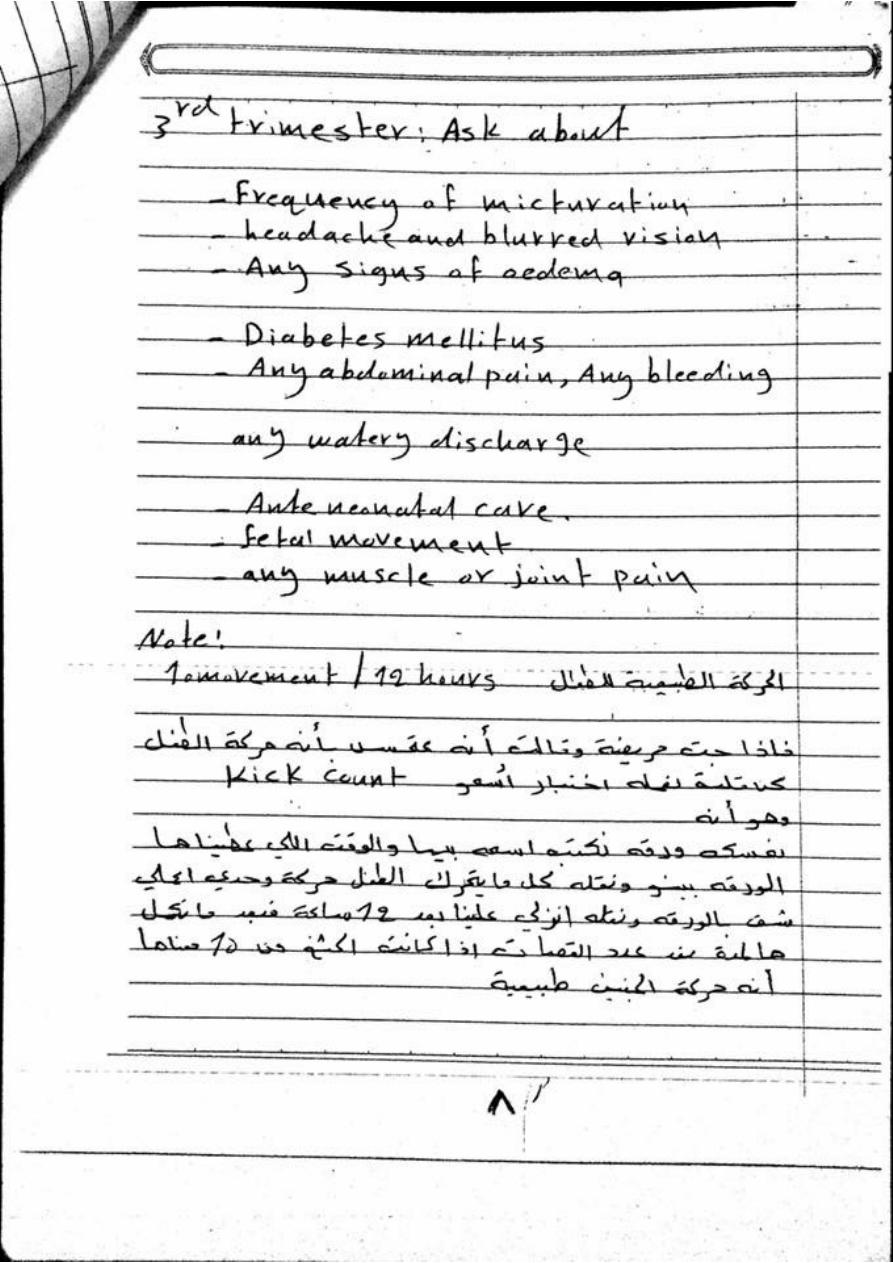 3rd trimester: Ask about
- Frequency of micturation
- headache and blurred vision
- Any signs of oedema
- Diabetes mellitus
- Any abdominal pain, Any bleeding
any watery discharge
- Ante neonatal care.
- fetal movement
- any muscle or joint pain
Note!
10movement / 12 hours الحركة الطبيعية للطفل
فاذا جت مريضة وقالت أنه بأنه حركة الطفل
اختبار اسمو Kick Count
وهو أنه
ورقه نكتبه اسمه بيها والوقت اللي عطيناها
الورقه ونقله كل ما يتحرك الطفل حركة وحدي اعملي
بالورقه ونقله علينا بعد 12 ساعة
عدد اذا كانت اكثر من 10 معناها
أنه حركة الجنين طبيعية
٨